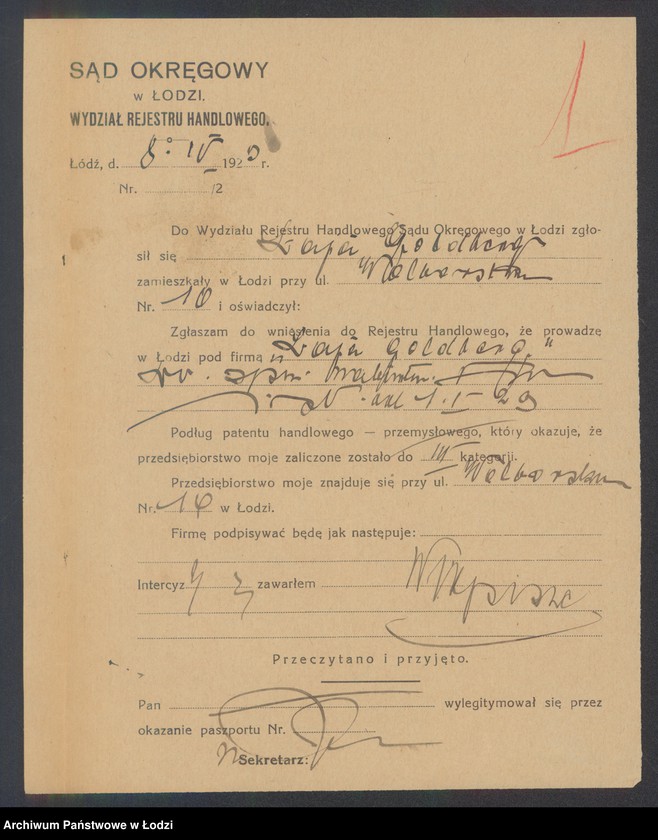 SĄD OKRĘGOWY
w ŁODZI.
WYDZIAŁ REJESTRU HANDLOWEGO.
Łódź, d. 8. IV 1929 r.
Nr. /2
1
Do Wydziału Rejestru Handlowego Sądu Okręgowego w Łodzi zgło-
sił się Łaja Goldberg
zamieszkały w Łodzi przy ul. Wolborska
Nr. 10 i oświadczył:
Zgłaszam do wniesienia do Rejestru Handlowego, że prowadzę
w Łodzi pod firmą „Łaja Goldberg"
od 1.I 29
Podług patentu handlowego — przemysłowego, który okazuje, że
przedsiębiorstwo moje zaliczone zostało do III kategorji.
Przedsiębiorstwo moje znajduje się przy ul. Wolborska
Nr. w Łodzi.
Firmę podpisywać będę jak następuje:
Intercyz zawarłem
Przeczytano i przyjęto.
Pan wylegitymował się przez
okazanie paszportu Nr.
Sekretarz:
Archiwum Państwowe w Łodzi